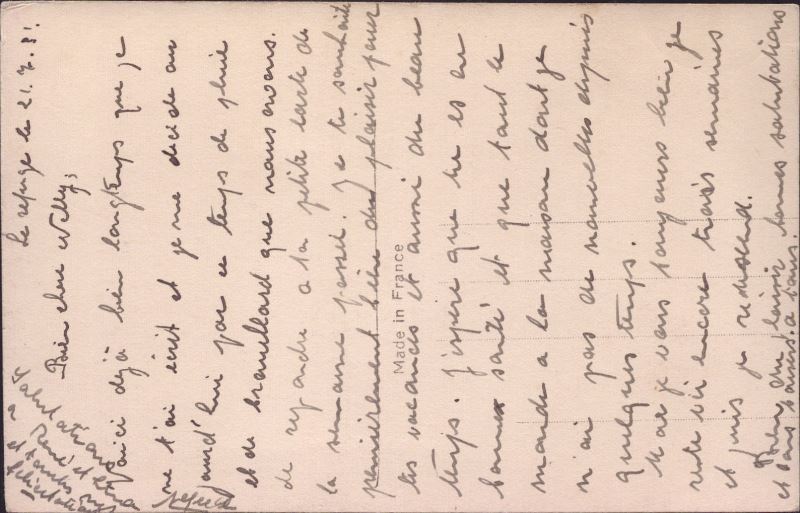 Le refuge le 21.7.31.
Bien cher Willy,
Voici déjà bien longtemps que je
ne t'ai écrit et je me décide au
jourd'hui par ce temps de pluie
et de brouillard que nous avons.
de repondre a ta petite carte de
la semaine passée. Je te souhaite
premierement bien du plaisir pour
tes vacances et aussi du beau
temps. J'espère que tu es en
bonne santé et que tout le
monde a la maison dont je
n'ai pas de nouvelles depuis
quelques temps.
Moi je vais toujours bien je
reste ici encore trois semaines
et puis je redescend.
Bien des bonnes salutations
et bons baisers à tous.
Salutations
a René et
et toutes mes
félicitations
Made in France